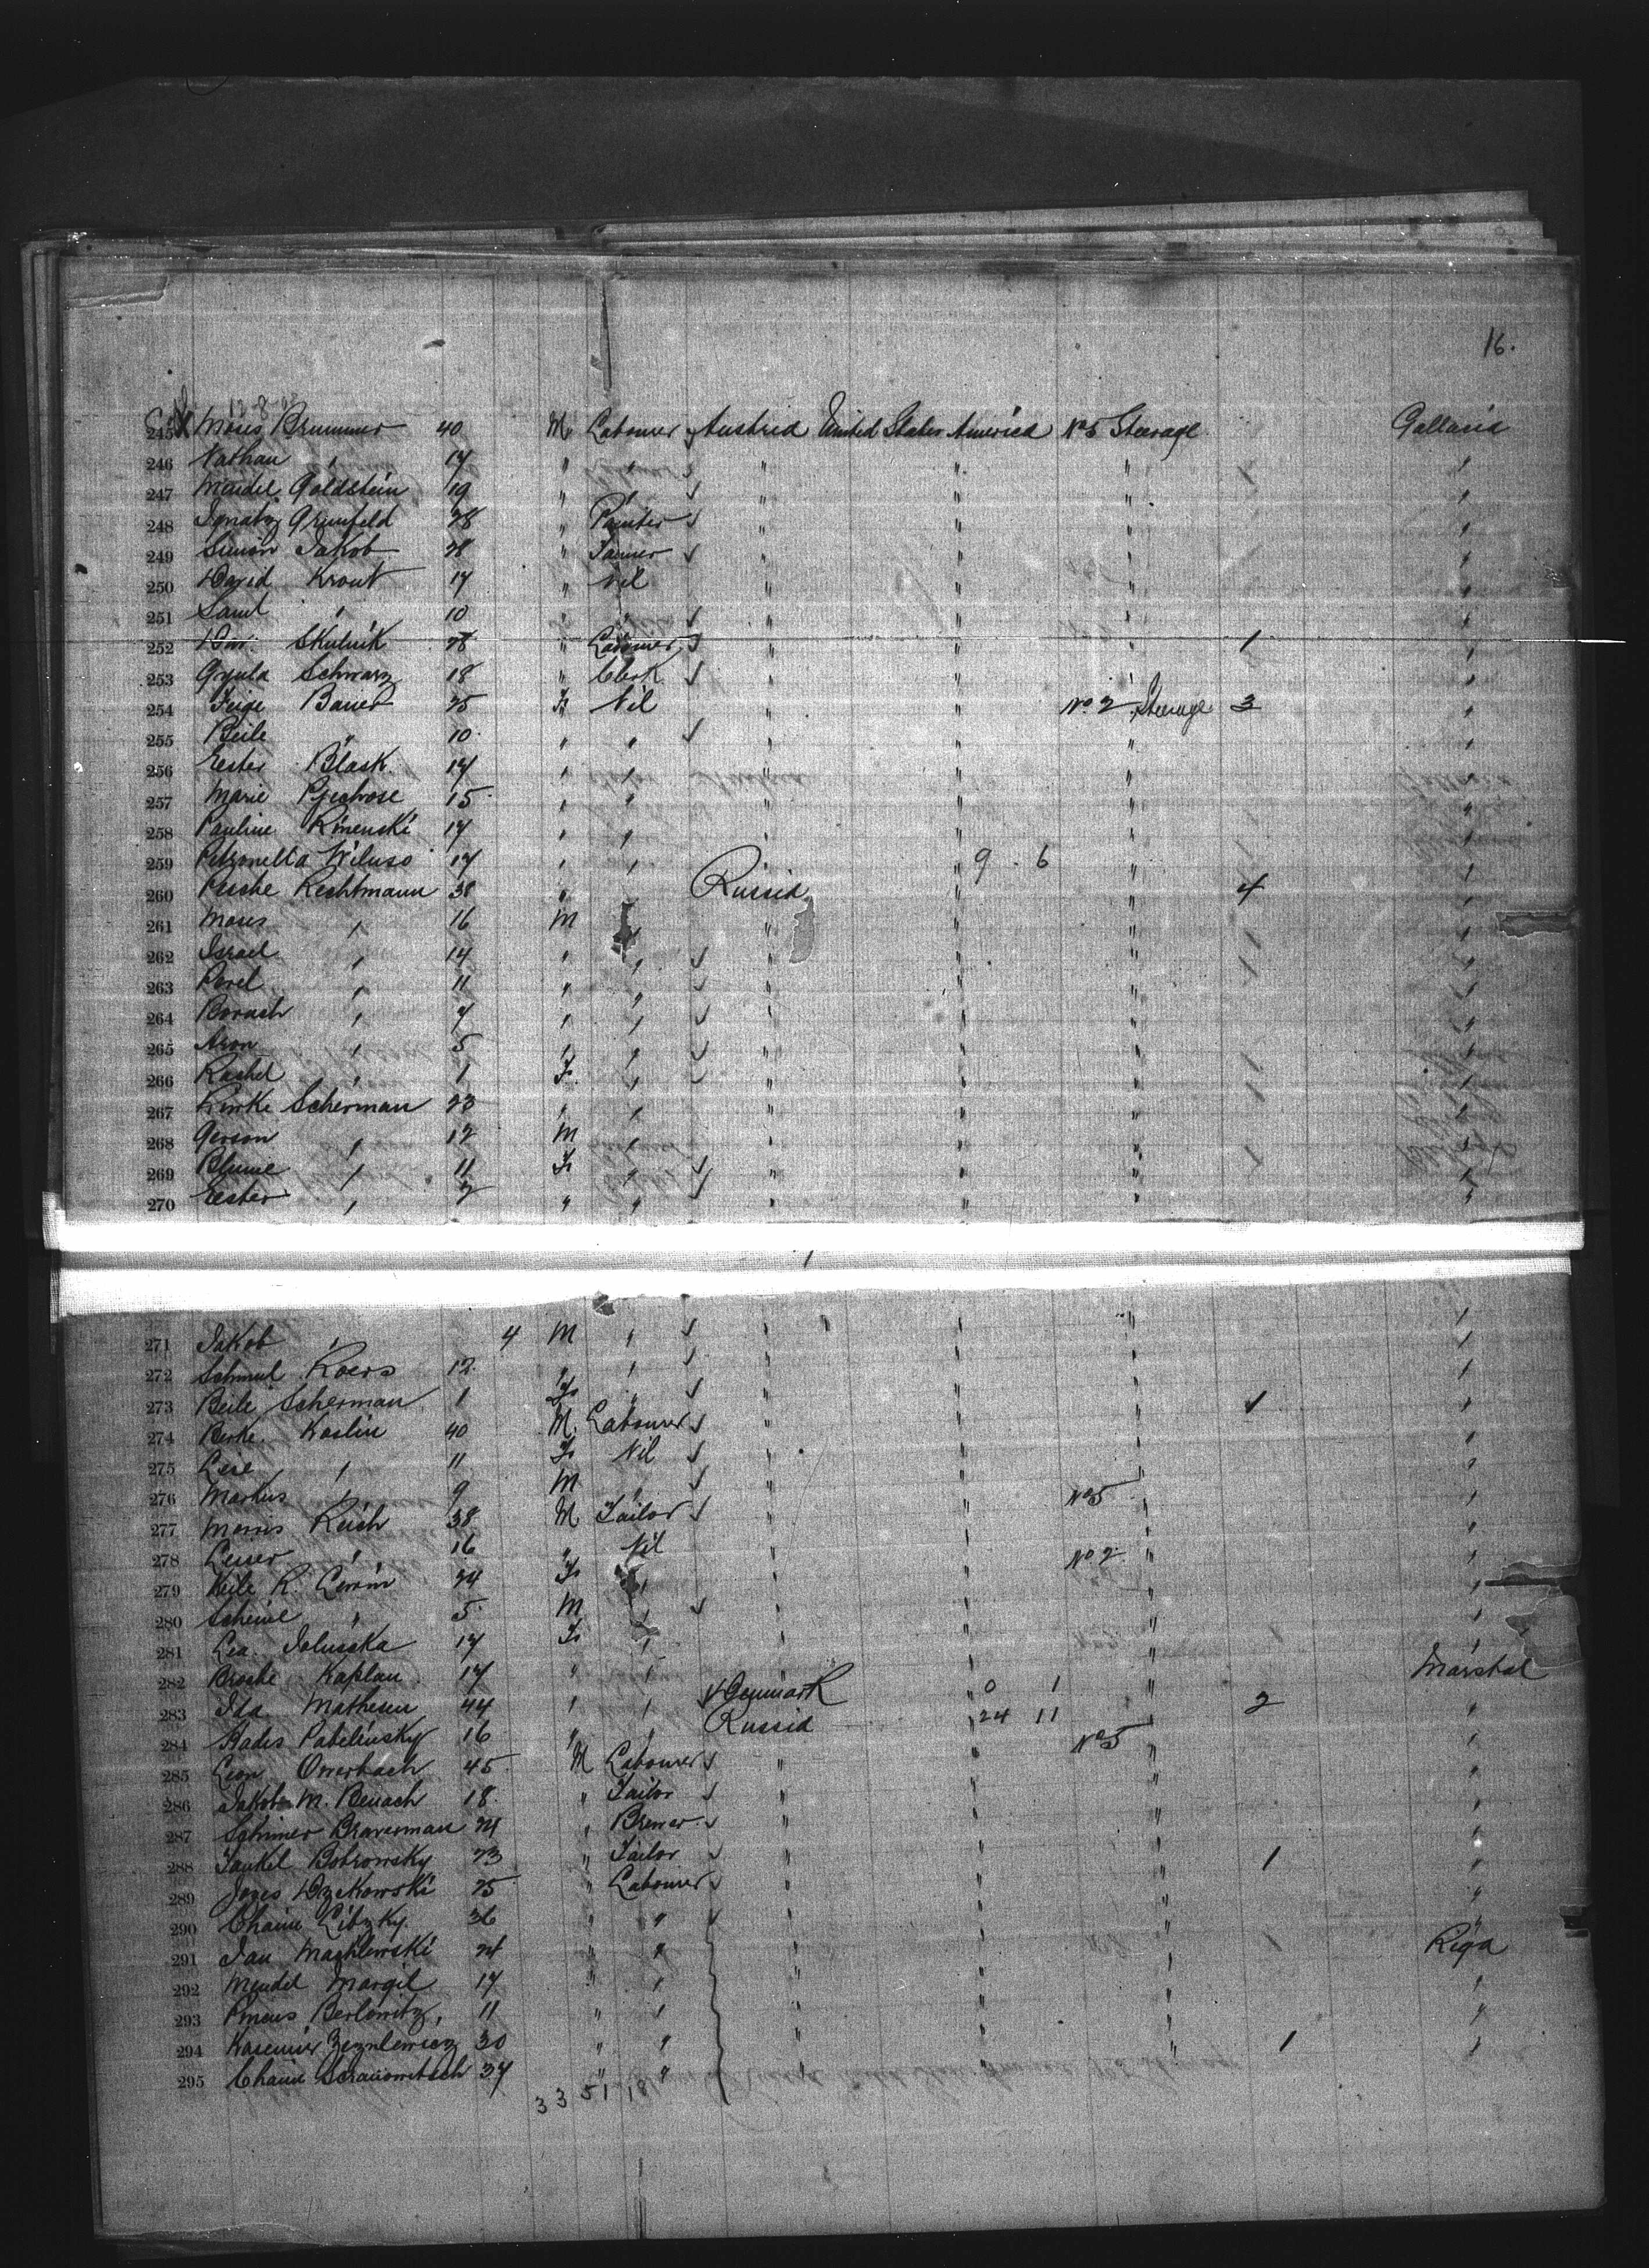 16.
12-8-
245 Moses Brummer 40 M Labourer Austria United States America No 5 Steerage Gallacia
246 Nathan " 17 " " " " " "
247 Mendel Goldstein 19 " " " " " "
248 Ignatz Grunfeld 28 " Painter " " " "
249 Simon Jakob 28 " Tanner " " " "
250 David Krout 17 " Nil " " " "
251 Saml " 10 " " " " " "
252 Dav. Skulnik 28 " Labourer " " " 1 "
253 Gyula Schwarz 18 " Clerk " " " "
254 Feige Bauer 25 F Nil " " No 2 Steerage 3 "
255 Beile " 10 " " " " " "
256 Eester Blask 17 " " " " " "
257 Marie 15 " " " " " "
258 Pauline 17 " " " " " "
259 Petronella Wiluso 17 " " " " 9 . 6 " "
260 Pesche Rechtmann 38 " " Russia " " 4 "
261 Moses " 16 M " " " " "
262 Israel " 14 " " " " " "
263 " 11 " " " " " "
264 Boruch " 7 " " " " " "
265 Aron " 5 " " " " " "
266 Rachel " 1 F " " " " "
267 Scherman 23 " " " " " "
268 Gerson " 12 M " " " " "
269 Blume " 11 F " " " " "
270 Eester " 7 " " " " " "
271 Jakob " 4 M " " " " "
272 Schmul Koers 12 " " " " " "
273 Beile Scherman 1 F " " " " 1 "
274 Berke Koslin 40 M Labourer " " " "
275 Lese " 11 F Nil " " " "
276 Markus " 9 M " " " " "
277 Morris Reich 38 M Tailor " " No 5 " "
278 Leiser " 16 " Nil " " " "
279 Keile R. Lewin 24 F " " " No 2 " "
280 " 5 M " " " " "
281 Lea 17 F " " " " "
282 Brocke Kaplan 17 " " " " " "
283 Ida Mathesen 44 " " Denmark " 0 1 " 2 Marstal
284 Pabelinsky 16 " " Russia " 24 11 " "
285 Leon 45 M Labourer " " No 5 " "
286 Jakob M. Benach 18 " Tailor " " " "
287 Braverman 24 " Brewer " " " "
288 Jankel Bobrowsky 23 " Tailor " " " 1 "
289 25 " Labourer " " " "
290 Chaim Litzky 36 " " " " " "
291 Jan 24 " " " " " Riga
292 Mendel Margil 17 " " " " " "
293 Pincus Berlowitz 11 " " " " " "
294 Kasemir 30 " " " " " 1 "
295 Chaim 37 " " " " "
33 51 18